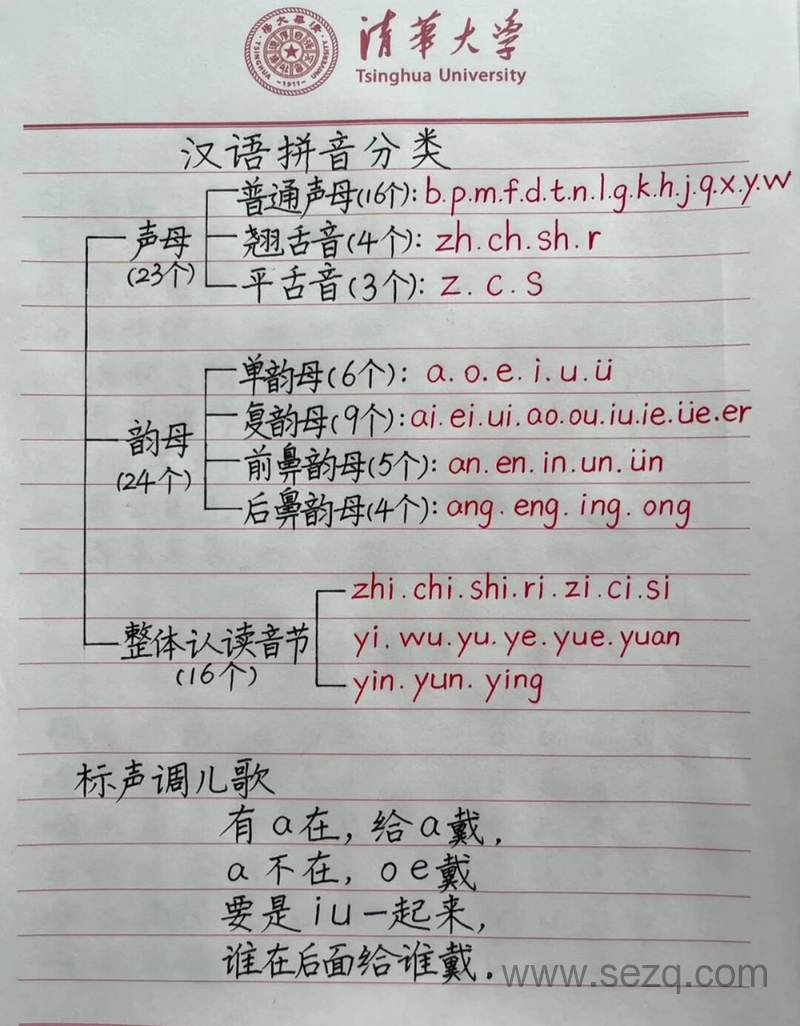 清华大学
Tsinghua University
TSINGHUA UNIVERSITY
-1911-
汉语拼音分类
普通声母(16个): b.p.m.f.d.t.n.l.g.k.h.j.q.x.y.w
声母 翘舌音(4个): zh.ch.sh.r
(23个)
平舌音(3个): z.c.s
单韵母(6个): a.o.e.i.u.ü
复韵母(9个): ai.ei.ui.ao.ou.iu.ie.üe.er
韵母
前鼻韵母(5个): an.en.in.un.ün
(24个)
后鼻韵母(4个): ang.eng.ing.ong
zhi.chi.shi.ri.zi.ci.si
整体认读音节 yi.wu.yu.ye.yue.yuan
(16个) yin.yun.ying
标声调儿歌
有a在,给a戴,
a不在,oe戴
要是iu一起来,
谁在后面给谁戴.
www.sezq.com